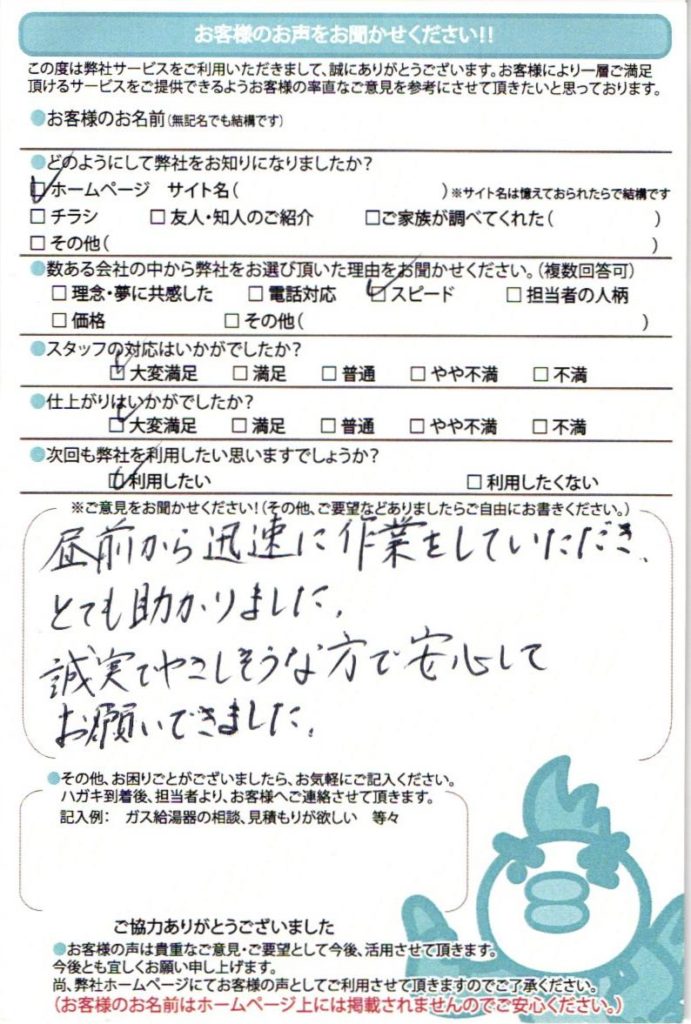 お客様のお声をお聞かせください!!
この度は弊社サービスをご利用いただきまして、誠にありがとうございます。お客様により一層ご満足
頂けるサービスをご提供できるようお客様の率直なご意見を参考にさせて頂きたいと思っております。
●お客様のお名前(無記名でも結構です)
●どのようにして弊社をお知りになりましたか?
☑ホームページ サイト名( )※サイト名は憶えておられたらで結構です
□チラシ □友人・知人のご紹介 □ご家族が調べてくれた( )
□その他( )
●数ある会社の中から弊社をお選び頂いた理由をお聞かせください。(複数回答可)
□理念・夢に共感した □電話対応 ☑スピード □担当者の人柄
□価格 □その他( )
●スタッフの対応はいかがでしたか?
☑大変満足 □満足 □普通 □やや不満 □不満
●仕上がりはいかがでしたか?
☑大変満足 □満足 □普通 □やや不満 □不満
●次回も弊社を利用したい思いますでしょうか?
☑利用したい □利用したくない
※ご意見をお聞かせください!(その他、ご要望などありましたらご自由にお書きください。)
昼前から迅速に作業をしていただき、
とても助かりました。
誠実でやさしそうな方で安心して
お願いできました。
●その他、お困りごとがございましたら、お気軽にご記入ください。
ハガキ到着後、担当者より、お客様へご連絡させて頂きます。
記入例: ガス給湯器の相談、見積もりが欲しい 等々
ご協力ありがとうございました
●お客様の声は貴重なご意見・ご要望として今後、活用させて頂きます。
今後とも宜しくお願い申し上げます。
尚、弊社ホームページにてお客様の声としてご利用させて頂きますのでご了承ください。
(お客様のお名前はホームページ上には掲載されませんのでご安心ください。)